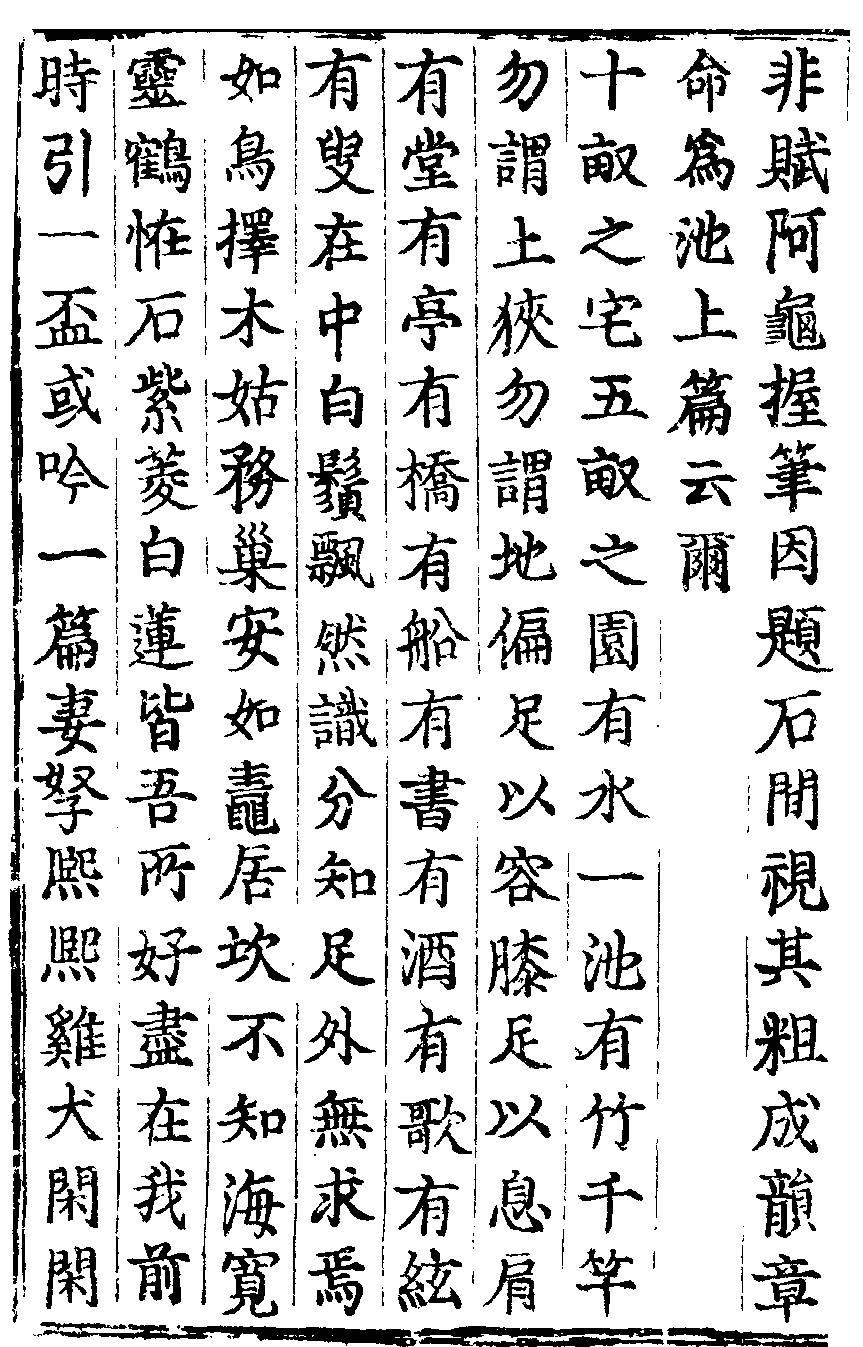 非賦阿龜握筆因題石間視其粗成韻章
命爲池上篇云爾
十畝之宅五畝之園有水一池有竹千竿
勿謂土狹勿謂地偏足以容膝足以息肩
有堂有亭有橋有船有書有酒有歌有絃
有叟在中白鬚飄然識分知足外無求焉
如鳥擇木姑務巢安如鼃居坎不知海寬
靈鶴恠石紫菱白蓮皆吾所好盡在我前
時引一盃或吟一篇妻孥熈熈雞犬閑閑